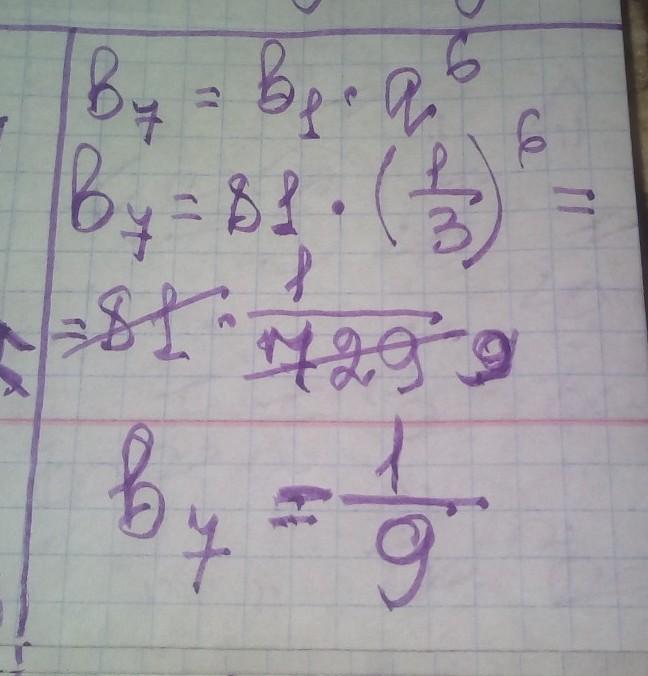 b₇ = b₁ · q⁶
b₇ = 81 · (1/3)⁶ =
= 81 · 1/729 9
b₇ = 1/9